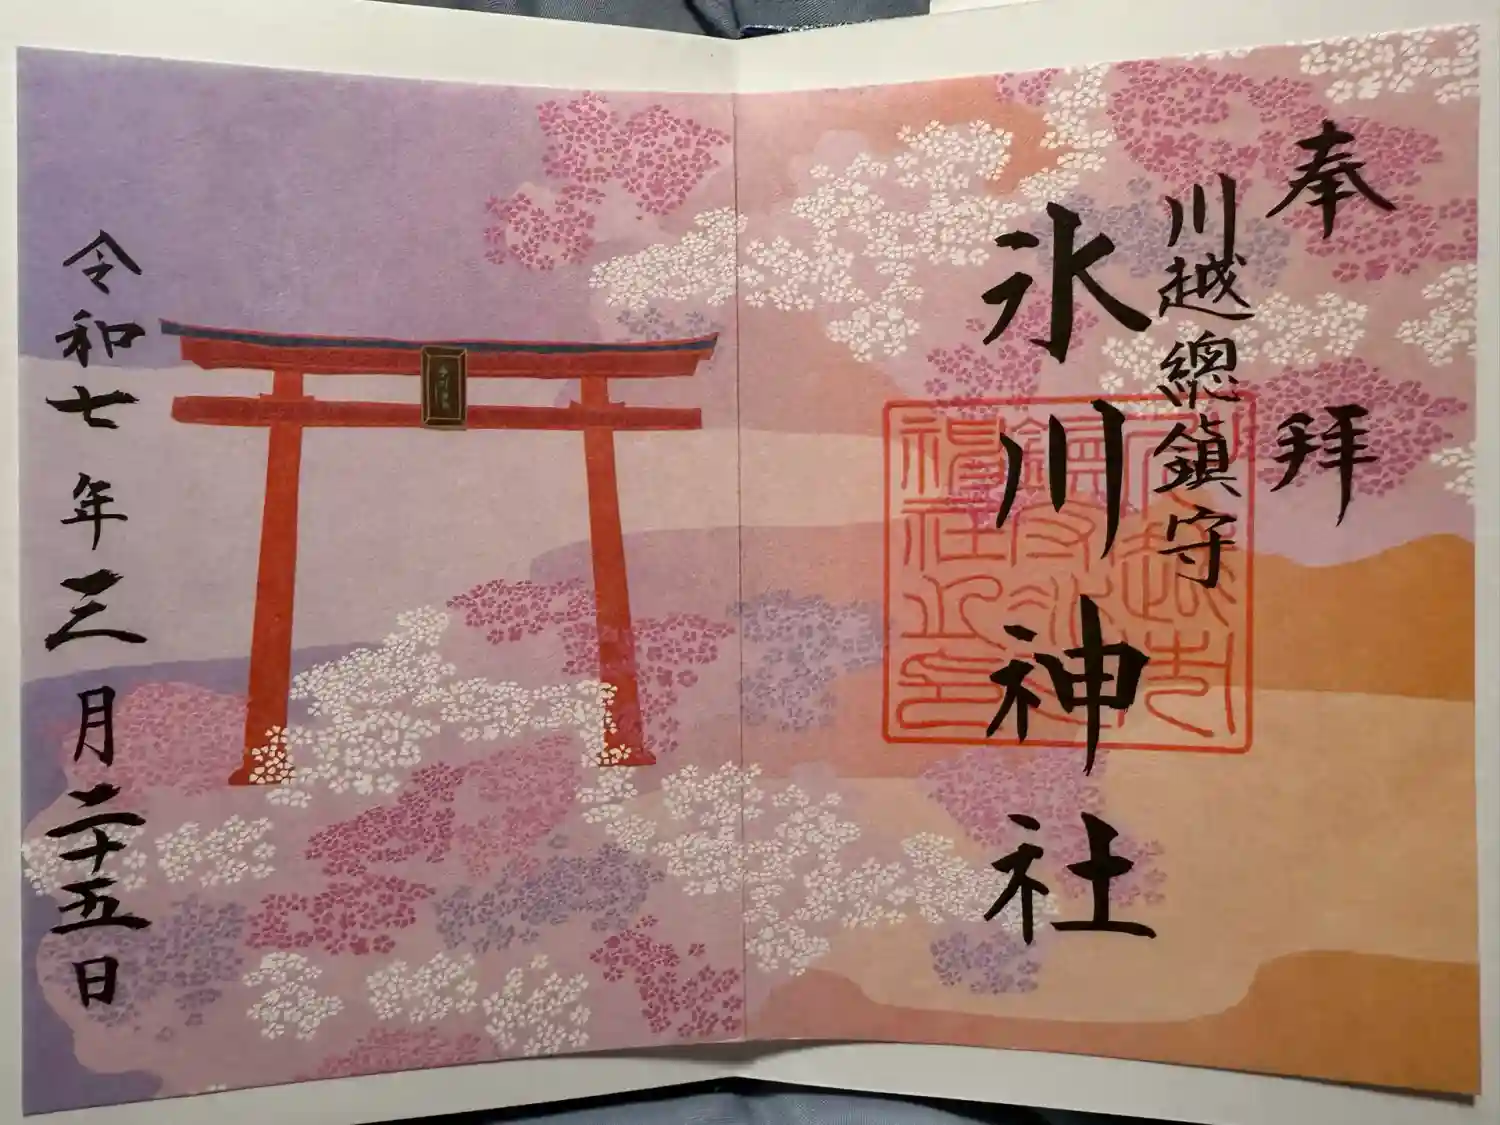 奉拝
川越總鎮守
氷川神社
令和七年三月二十五日